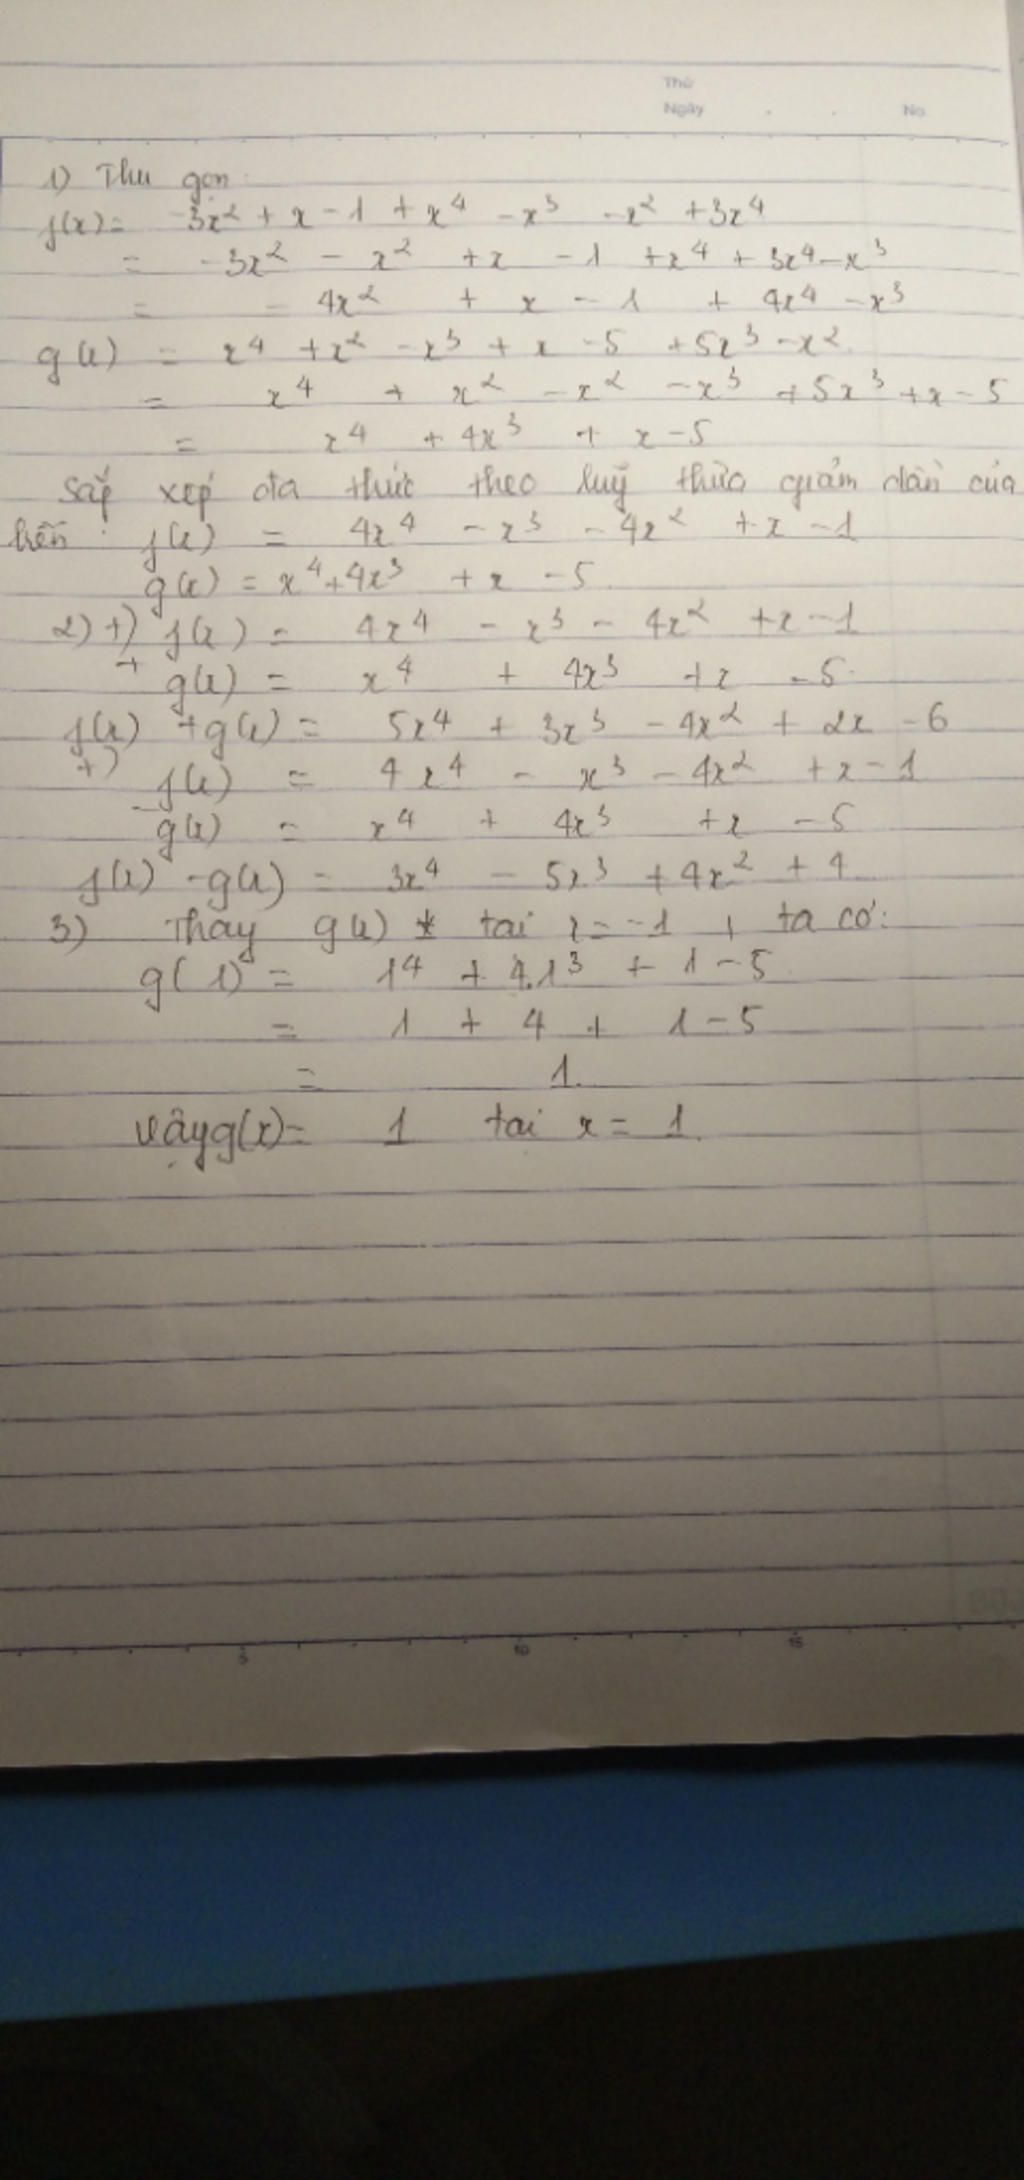 Thứ
Ngày . . No.
1) Thu gọn:
f(x) = -3x² + x - 1 + x⁴ - x³ - x² + 3x⁴
= -3x² - x² + x - 1 + x⁴ + 3x⁴ - x³
= - 4x² + x - 1 + 4x⁴ - x³
g(x) = x⁴ + x² - x³ + x - 5 + 5x³ - x²
= x⁴ + x² - x² - x³ + 5x³ + x - 5
= x⁴ + 4x³ + x - 5
Sắp xếp đa thức theo luỹ thừa giảm dần của
biến: f(x) = 4x⁴ - x³ - 4x² + x - 1
g(x) = x⁴ + 4x³ + x - 5
2) +) f(x) = 4x⁴ - x³ - 4x² + x - 1
+ g(x) = x⁴ + 4x³ + x - 5
f(x) + g(x) = 5x⁴ + 3x³ - 4x² + 2x - 6
+) f(x) = 4x⁴ - x³ - 4x² + x - 1
- g(x) = x⁴ + 4x³ + x - 5
f(x) - g(x) = 3x⁴ - 5x³ + 4x² + 4
3) Thay g(x) * tại x = -1 , ta có:
g(1) = 1⁴ + 4.1³ + 1 - 5
= 1 + 4 + 1 - 5
= 1.
Vậy g(x) = 1 tại x = 1.
5 10 15